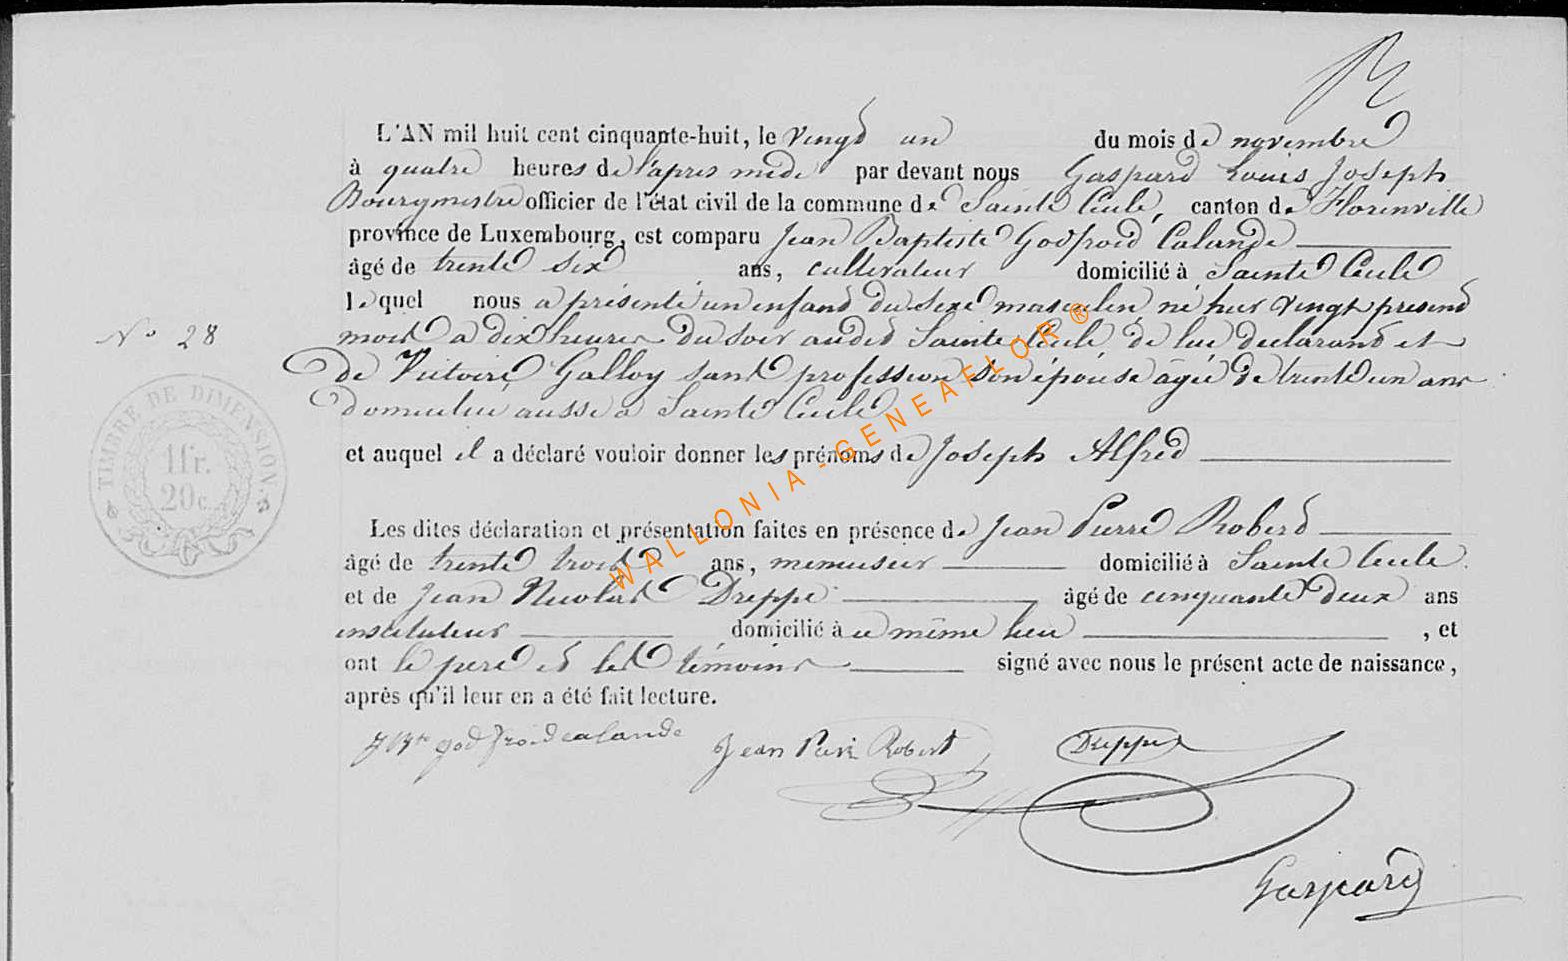 L'AN mil huit cent cinquante-huit, le vingt un du mois de novembre
à quatre heures de l'apres midi par devant nous Gaspard Louis Joseph
Bourgmestre officier de l'état civil de la commune de Sainte Cecile, canton de Florenville
province de Luxembourg, est comparu Jean Baptiste Godfroid Calande
âgé de trente six ans, cultivateur domicilié à Sainte Cecile
lequel nous a présenté un enfant du sexe masculin, né hier vingt present
N° 28
mois a dix heures du soir audit Sainte Cecile de lui declarant et
de Victoire Galloy sans profession son épouse agée de trente un ans
domiciliée aussi a Sainte Cecile
TIMBRE DE DIMENSION.
1 fr.
20 c.
et auquel il a déclaré vouloir donner les prénoms de Joseph Alfred
Les dites déclaration et présentation faites en présence de Jean Pierre Robert
âgé de trente trois ans, menuisier domicilié à Sainte Cecile
et de Jean Nicolas Dreppe âgé de cinquante deux ans
instituteur domicilié à ce même lieu, et
ont le pere et les témoins signé avec nous le présent acte de naissance,
après qu'il leur en a été fait lecture.
J Bte godfroid calande Jean Pierre Robert Dreppe
Gaspard
WALLONIA-GENEAFLOR ®